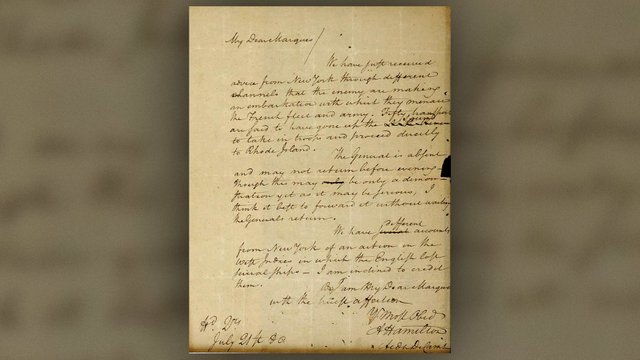 My Dear Marquis /
We have just received
advice from New York through different
channels that the enemy are making
an embarkation with which they menace
the French fleet and army. Fifty transports
are said to have gone up the Sound
to take in troops and proceed directly
to Rhode Island.
The General is absent
and may not return before evening.
Though this may only be only a demon-
stration yet as it may be serious, I
think it best to forward it without waiting
the Generals return.
different
We have several accounts
from New York of an action in the
West Indies in which the English lost
several ships – I am inclined to credit
them.
I am My Dear Marquis
with the truest affection
Yr Most Obed
A Hamilton
Aide De Camp
Hd Qrs
July 21st 80